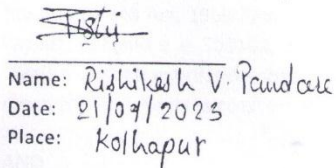 Rishi
Name: Rishikesh V. Pandare
Date: 21/07/2023
Place: Kolhapur